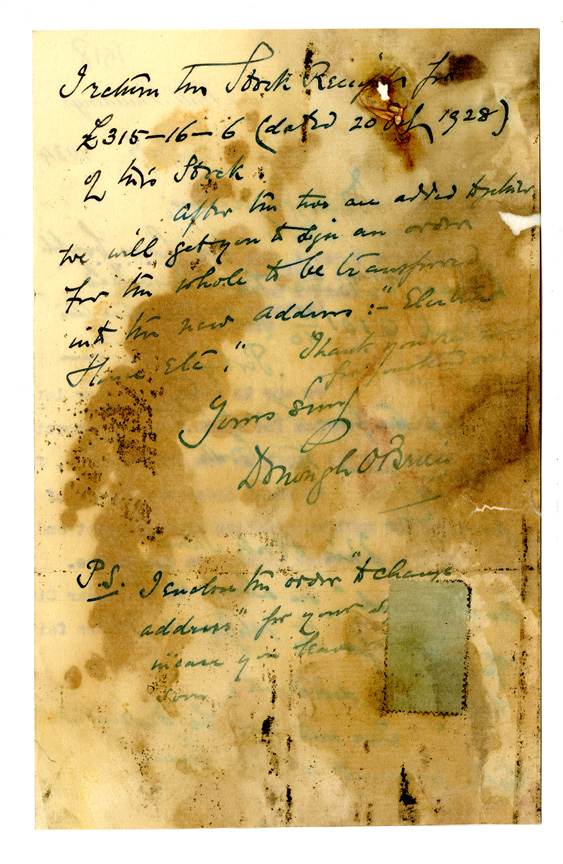 I return the Stock Receipts for
£315-16-6 (dated 20 1928)
of this Stock.
After the two are added together
we will get you to sign an order
for the whole to be transferred
into the new address:- "
House, Etc."
Thank you
for
Yours
Donough O'Brien
P.S. I enclose the order "to change
address" for your
in case you leave
soon